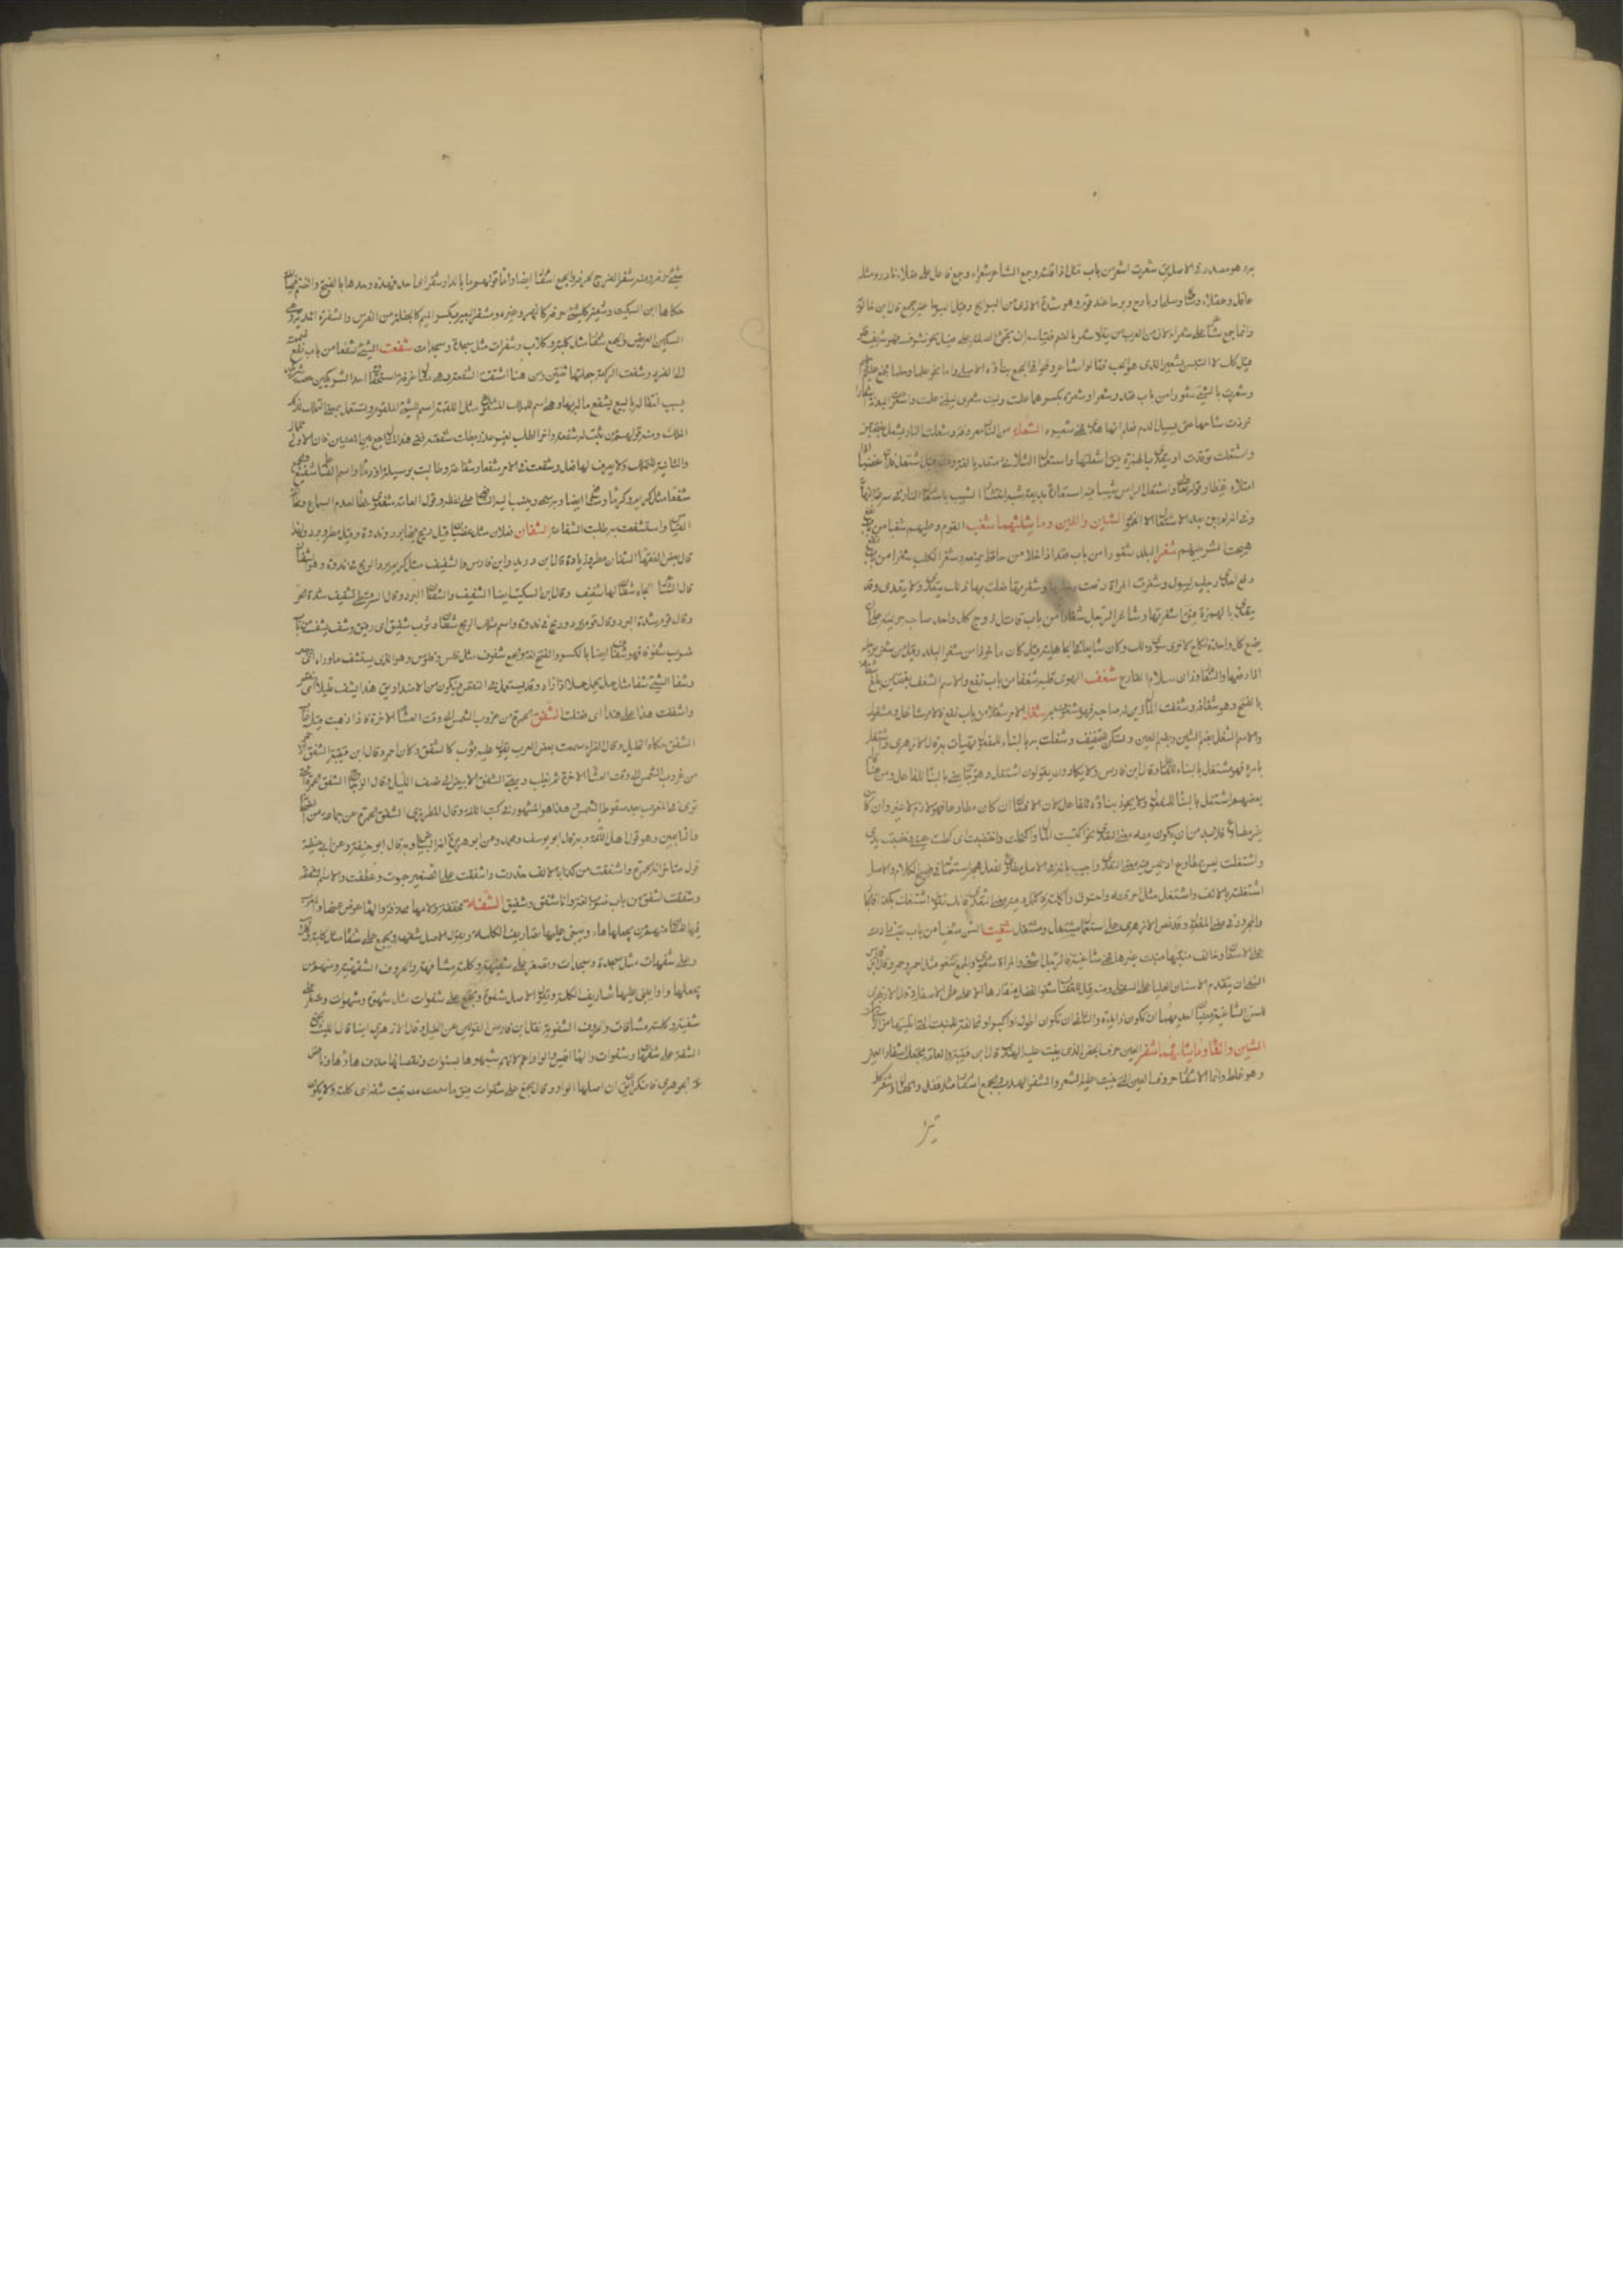 برد هو مصدر فى الاصل يق شعرت اشعر من باب قتل اذا قلته وجمع الشاعر شعراء وجمع فاعل على فعلاء نادر ومثله
عاقل وعقلاء وصالح وصلحاء وبارح وبرحاء عند قوم وهو شدة الاذى من التبريح وقيل البرحاء غير جمع قال ابن خالويه
وانما جمع شاعر على شعراء لان من العرب من يقول شعر بالضم فقياسه ان تجئ الصفة على فعيل نحو شرف فهو شريف فلو
قيل كذلك لالتبس بشعير الذى هو الحب فقالوا شاعر ولمحوا فى الجمع بناءه الاصلى واما نحو علماء وحلماء فجمع عليم وحليم
وشعرت بالشئ شعورا من باب قعد وشعرا وشعرة بكسرهما علمت وليت شعرى ليتنى علمت واشعرت البدنة اشعارا
حززت سنامها حتى يسيل الدم فيعلم انها هدى فهى شعيرة الشعلة من النار معروفة وشعلت النار تشعل بفتحتين
واشتعلت توقدت ويتعدى بالهمزة فيق اشعلتها واستعمال الثلاثى متعديا لغة ومنه قيل اشتعل فلان غضبا اذا
امتلاء غيظا وقوله تعالى واشتعل الراس شيبا فيه استعارة بديعة شبه انتشار الشيب باشتعال النار فى سرعة التهابه
وفى انه لم يبق بعد الاشتعال الا الخمود الشين والغين وما يثلثهما شغبت القوم وعليهم شغبا من باب نفع
هيجت الشر بينهم شغر البلد شغورا من باب قعد اذا خلا من حافظ يمنعه وشغر الكلب شغرا من باب نفع
رفع احدى رجليه ليبول وشغرت المراة رفعت رجلها وشغرتها فعلت بها ذلك يتعدى ولا يتعدى وقد
يتعدى بالهمزة فيق اشغرتها وشاغر الرجل شغارا من باب قاتل زوج كل واحد صاحبه حريمته على ان
بضع كل واحدة نكاح الاخرى سوى ذلك وكان سائغا فى الجاهلية قيل كان ماخوذا من شغر البلد وقيل من شغر برجله
اذا رفعها والشغار وزان سلام الفارغ شغف الهوى قلبه شغفا من باب نفع والاسم الشغف بفتحتين بلغ شغافه
بالفتح وهو غشاؤه وشغفه المال زين له صاحبه فهو مشغوف به شغله الامر شغلا من باب نفع فالامر شاغل وهو مشغول
والاسم الشغل بضم الشين وبضم الغين وتسكن للتخفيف وشغلت به بالبناء للمفعول تلهيت به قال الازهرى واشتغل
بامره فهو مشتغل بالبناء للفاعل وقال ابن فارس ولا يكادون يقولون اشتغل وهو جائز يعنى بالبناء للفاعل ومن هنا قال
بعضهم اشتغل بالبناء للمفعول ولا يجوز بناؤه للفاعل لان الافتعال ان كان مطاوعا فهو لازم لا غير وان كان
غير مطاوع فلا بد من ان يكون فيه معنى التعدى نحو اكتسبت المال واكتحلت واختضبت اى كحلت عينى وخضبت يدى
واشتغلت ليس بمطاوع وليس فيه معنى التعدى واجيب بانه فى الاصل مطاوع لفعل هجر استعماله فى فصيح الكلام والاصل
اشغلته بالالف فاشتغل مثل احرقته فاحترق واكملته فاكتمل وفيه معنى التعدى فانك تقول اشتغلت بكذا فالجار
والمجرور فى معنى المفعول وقد نص الازهرى على استعمال مشتغل ومشتغل شغيت السن شغا من باب تعب زادت
على الاسنان وخالف منبتها منبت غيرها فهى شاغية فالرجل اشغى والمراة شغواء والجمع شغو مثل احمر وحمر وقال ابن فارس
الشغا ان يتقدم الاسنان العليا على السفلى ومنه قيل للعقاب شغواء لفضل منقارها الاعلى على الاسفل وقال الازهرى
للسن الشاغية معنيان احدهما ان تكون زائدة والثانى ان تكون اطول او اكبر او مخالفة لمنبت التى تليها من الاسنان
الشين والفاء وما يثلثهما شفر العين حرف الجفن الذى ينبت عليه الهدب قال ابن قتيبة والعامة تجعل اشفار العين الشعر
وهو غلط وانما الاشفار حروف العين التى ينبت عليها الشعر والشعر الهدب والجمع اشفار مثل قفل واقفال وشفر كل
شئ حرفه ومنه شفر الفرج لحرفه والجمع اشفار ايضا واما قولهم ما بالدار شفر اى احد فهذه وحدها بالفتح والضم فيها لغة
حكاها ابن السكيت وشفير كل شئ حرفه كالنهر وغيره ومشفر البعير بكسر الميم كالجحفلة من الفرس والشفرة المدية وهى
السكين العريض والجمع شفار مثل كلبة وكلاب وشفرات مثل سجدة وسجدات شفعت الشئ شفعا من باب نفع ضممته
الى الفرد وشفعت الركعة جعلتها ثنتين ومن هنا اشتقت الشفعة
بسبب انتقاله بالبيع يشفع ماله بها وهى اسم للملك المشفوع مثل اللقمة اسم للشئ الملقوم وتستعمل بمعنى التملك لذلك
الملك ومنه قولهم من ثبتت له شفعة فاخر الطلب بغير عذر بطلت شفعته ففى هذا المثال جمع بين المعنيين فان الاولى للمال
والثانية للتملك ولا يعرف لها فعل وشفعت فى الامر شفعا وشفاعة طالبت بوسيلة او ذمام واسم الفاعل شفيع والجمع
شفعاء مثل كريم وكرماء وشافع ايضا وبه سمى وينسب اليه الشافعى على لفظه وقول العامة شفعوى خطا لعدم السماع ومخالفة
القياس واستشفعت به طلبت الشفاعة الشفان فعلان مثل غضبان قيل ريح فيها برد وندوة وقيل مطر وبرد ولهذا
قال بعض الفقهاء الشفان مطر وزيادة قال ابن دريد وابن فارس والشفيف مثل كريم برد الريح فى ندوة وهو الشفان
قال الشاعر الجاه شفان لها شفيف وقال ابن السكيت ايضا الشفيف والشفان البرد وقال السرقسطى الشفيف شدة الحر
وقال قوم شدة البرد وقال قوم برد وريح فى ندوة واسم تلك الريح شفان وثوب شفيق اى رقيق وشف يشف من باب
ضرب شفوفا فهو شف ايضا بالكسر والفتح لغة والجمع شفوف مثل فلس وفلوس وهو الذى يستشف ماوراءه اى يبصر
وشف الشئ شفا مثل حمل يحمل حملا اذا زاد وقد يستعمل فى النقص فيكون من الاضداد يق هذا يشف قليلا اى ينقص
واشففت هذا على هذا اى فضلت الشفق الحمرة من غروب الشمس الى وقت العشاء الاخرة فاذا ذهبت قيل غاب
الشفق حكاه الخليل وقال الفراء سمعت بعض العرب يقول عليه ثوب كالشفق وكان احمر وقال ابن قتيبة الشفق الاحمر
من غروب الشمس الى وقت العشاء الاخرة ثم يغيب ويبقى الشفق الابيض الى نصف الليل وقال الزجاج الشفق الحمرة التى
ترى فى المغرب بعد سقوط الشمس وهذا هو المشهور فى كتب اللغة وقال المطرزى الشفق الحمرة عن جماعة من الصحابة
والتابعين وهو قول اهل اللغة وبه قال ابو يوسف ومحمد وعن ابو هريرة انه البياض وبه قال ابو حنيفة وعن ابى حنيفة
قول متاخر انه الحمرة واشفقت من كذا بالالف حذرت واشفقت على الصغير حنوت وعطفت والاسم الشفقة
وشفقت اشفق من باب ضرب لغة وانا مشفق وشفيق الشفة مخففة ولامها محذوفة والهاء عوض عنها وللعرب
فيها لغتان منهم من يجعلها هاء ويبنى عليها تصاريف الكلمة ويقول الاصل شفهة ويجمع على شفاه مثل كلبة وكلاب
وعلى شفهات مثل سجدة وسجدات وتصغر على شفيهة وكلمته مشافهة والحروف الشفهية ومنهم من
يجعلها واوا ويبنى عليها تصاريف الكلمة ويقول الاصل شفوة وتجمع على شفوات مثل شهوة وشهوات وتصغر على
شفية وكلمته مشافاة والحروف الشفوية نقل ابن فارس القولين عن الخليل وقال الازهرى ايضا قال الليث تجمع
الشفة على شفهات وشفوات والهاء اقيس والواو اعم لانهم شبهوها بسنوات ونقصانها حذف هائها وناقض
الجوهرى فانكر ان يق ان اصلها الواو وقال تجمع على شفوات يق ما سمعت منه بنت شفة اى كلمة ولا تكون